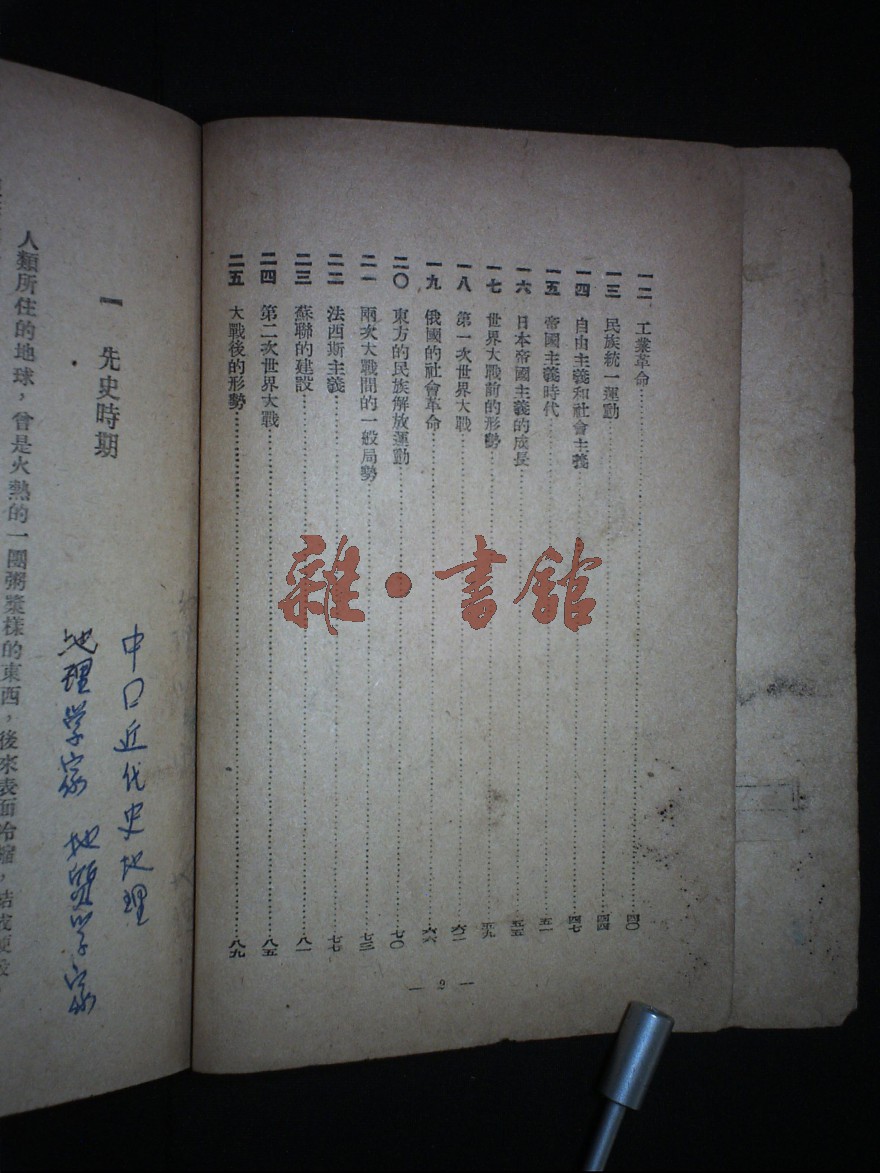 一二 工業革命 四〇
一三 民族統一運動 四四
一四 自由主義和社會主義 四七
一五 帝國主義時代 五一
一六 日本帝國主義的成長 五五
一七 世界大戰前的形勢 五九
一八 第一次世界大戰 六二
一九 俄國的社會革命 六六
二〇 東方的民族解放運動 七〇
二一 兩次大戰間的一般局勢 七三
二二 法西斯主義 七七
二三 蘇聯的建設 八一
二四 第二次世界大戰 八五
二五 大戰後的形勢 八九
— 2 —
雜·書館
中口近代史地理
地理学家 地質学家
一 先史時期
人類所住的地球，曾是火熱的一團粥漿樣的東西，後來表面冷縮，結成